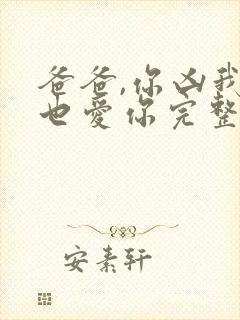 爸爸,你凶我
也爱你完整
安素轩